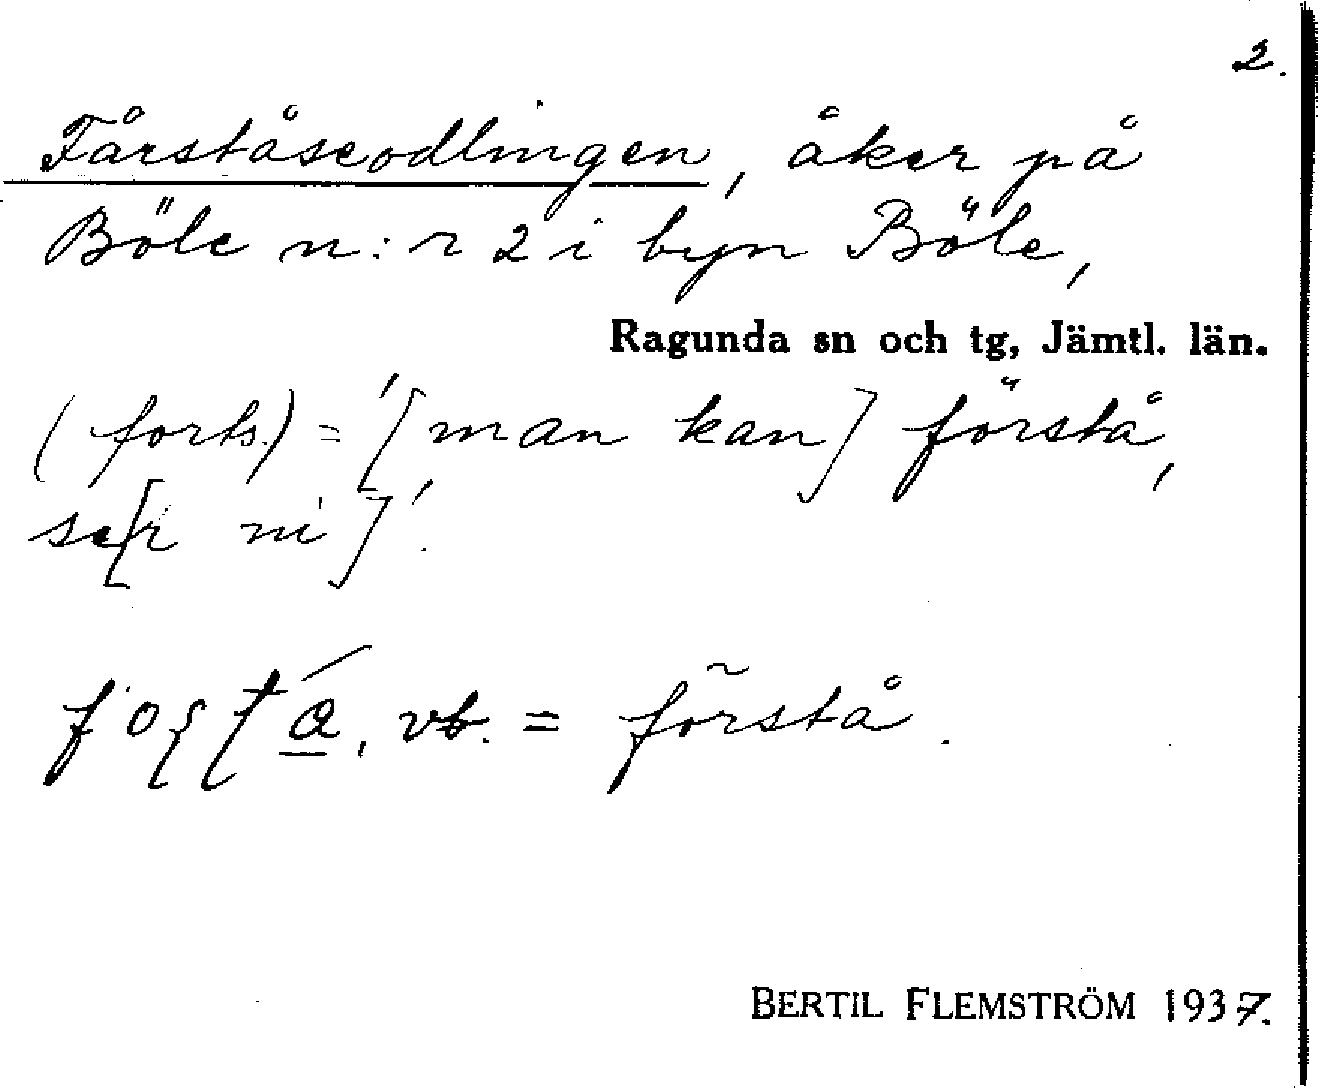 2.
Fårståseodlingen, åker på
Böle n:r 2 i byn Böle,
Ragunda sn och tg, Jämtl. län.
(forts.) = '[man kan] förstå,
se[r ni]'.
vb. = förstå.
BERTIL FLEMSTRÖM 1937.